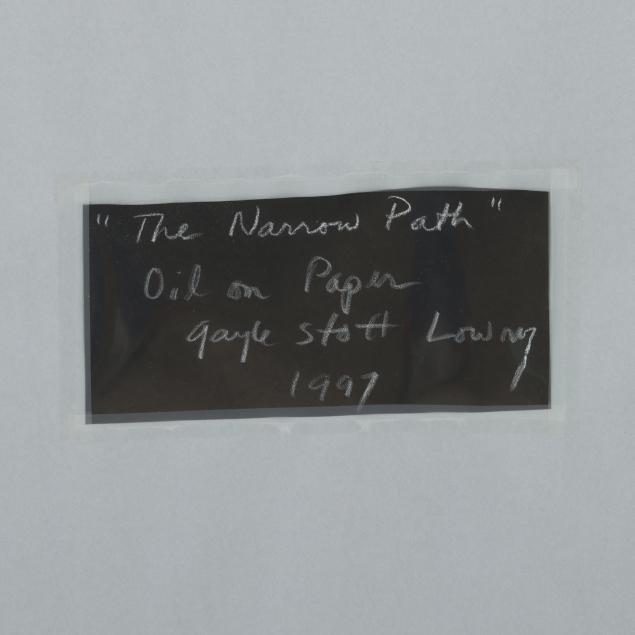 "The Narrow Path"
Oil on Paper
Gayle Stott Lowry
1997